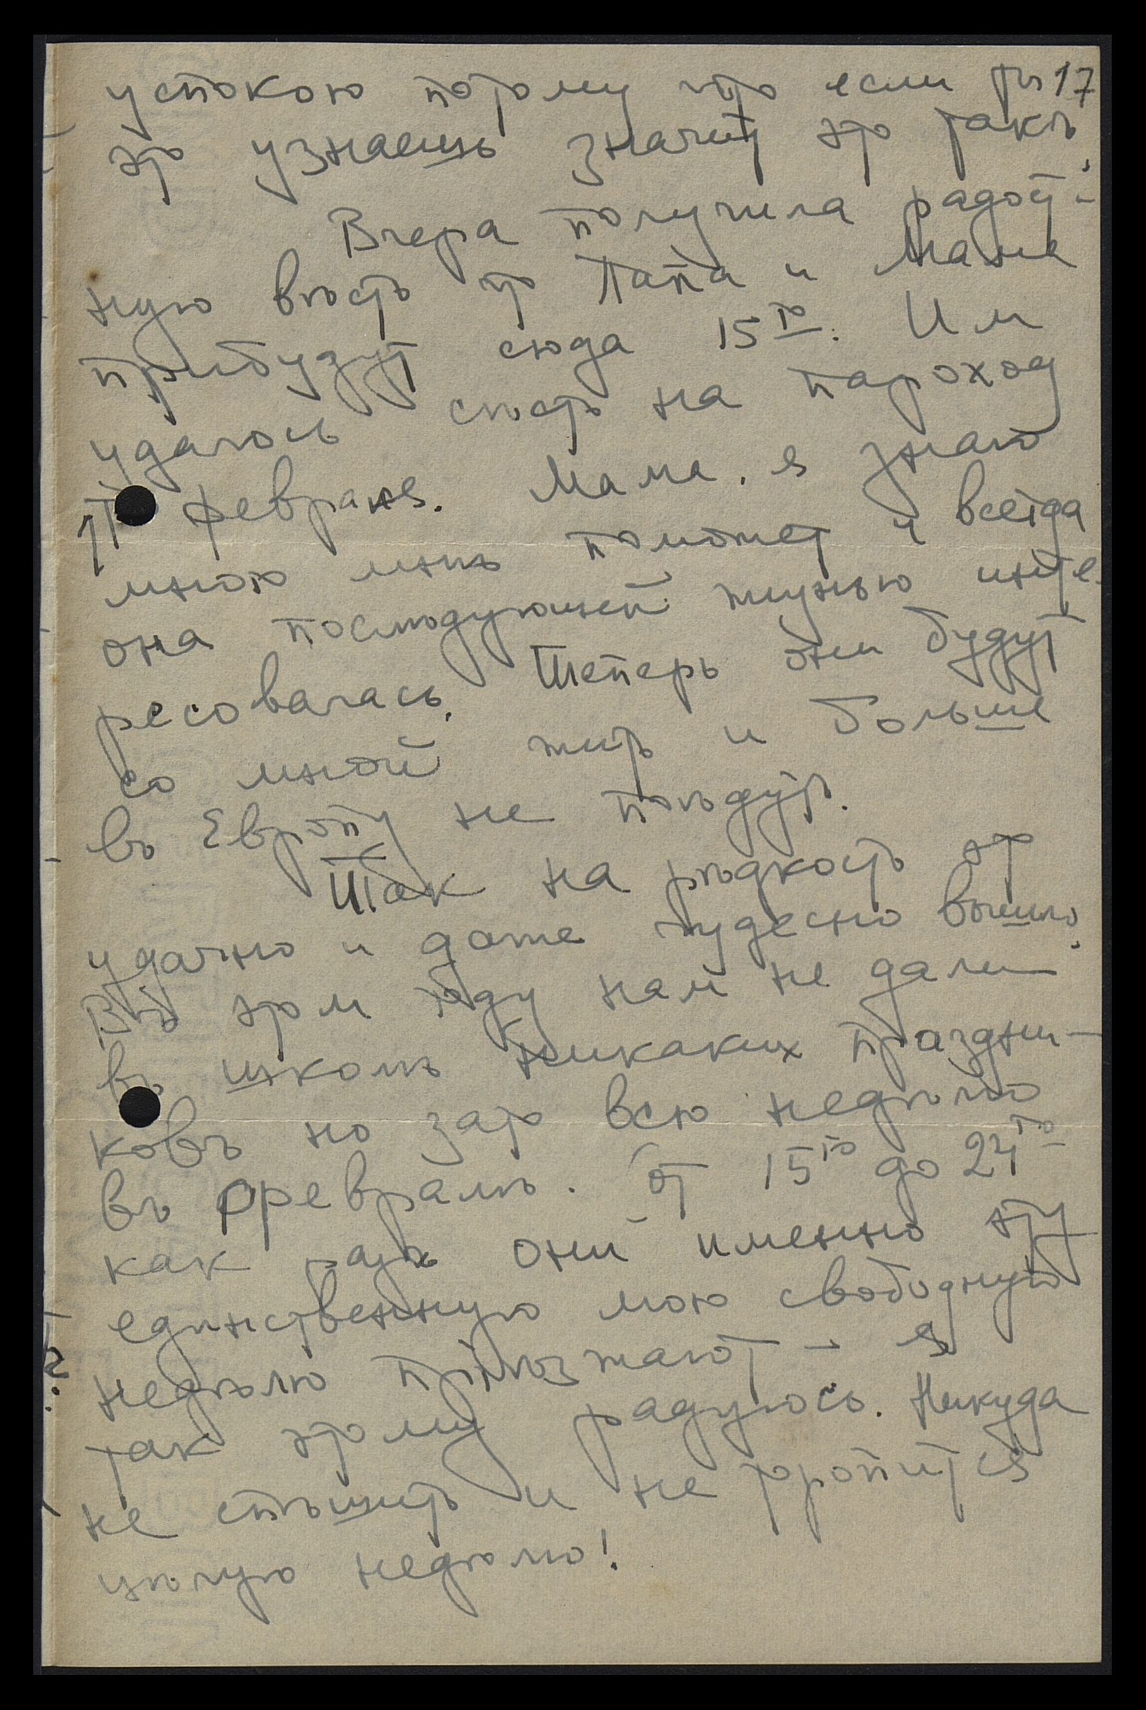 успокою потому что если ты 17
это узнаешь значит это такъ.
Вчера получила радост-
ную вѣсть что Папа и Мама
прибудут сюда 15го. Им
удалось сѣсть на пароход
февраля. Мама, я знаю
много мнѣ поможет и всегда
она послѣдующей жизнью инте-
ресовалась. Теперь они будут
со мной жить и больше
въ Европу не поѣдут.
Так на рѣдкость это
удачно и даже чудесно вышло.
Въ этом году нам не дали
въ школѣ никаких праздни-
ковъ но зато всю недѣлю
въ февралѣ. от 15го до 24го
как разъ они именно эту
единственную мою свободную
недѣлю пріѣзжают – я
так этому радуюсь. Никуда
не спѣшить и не торопится
цѣлую недѣлю!